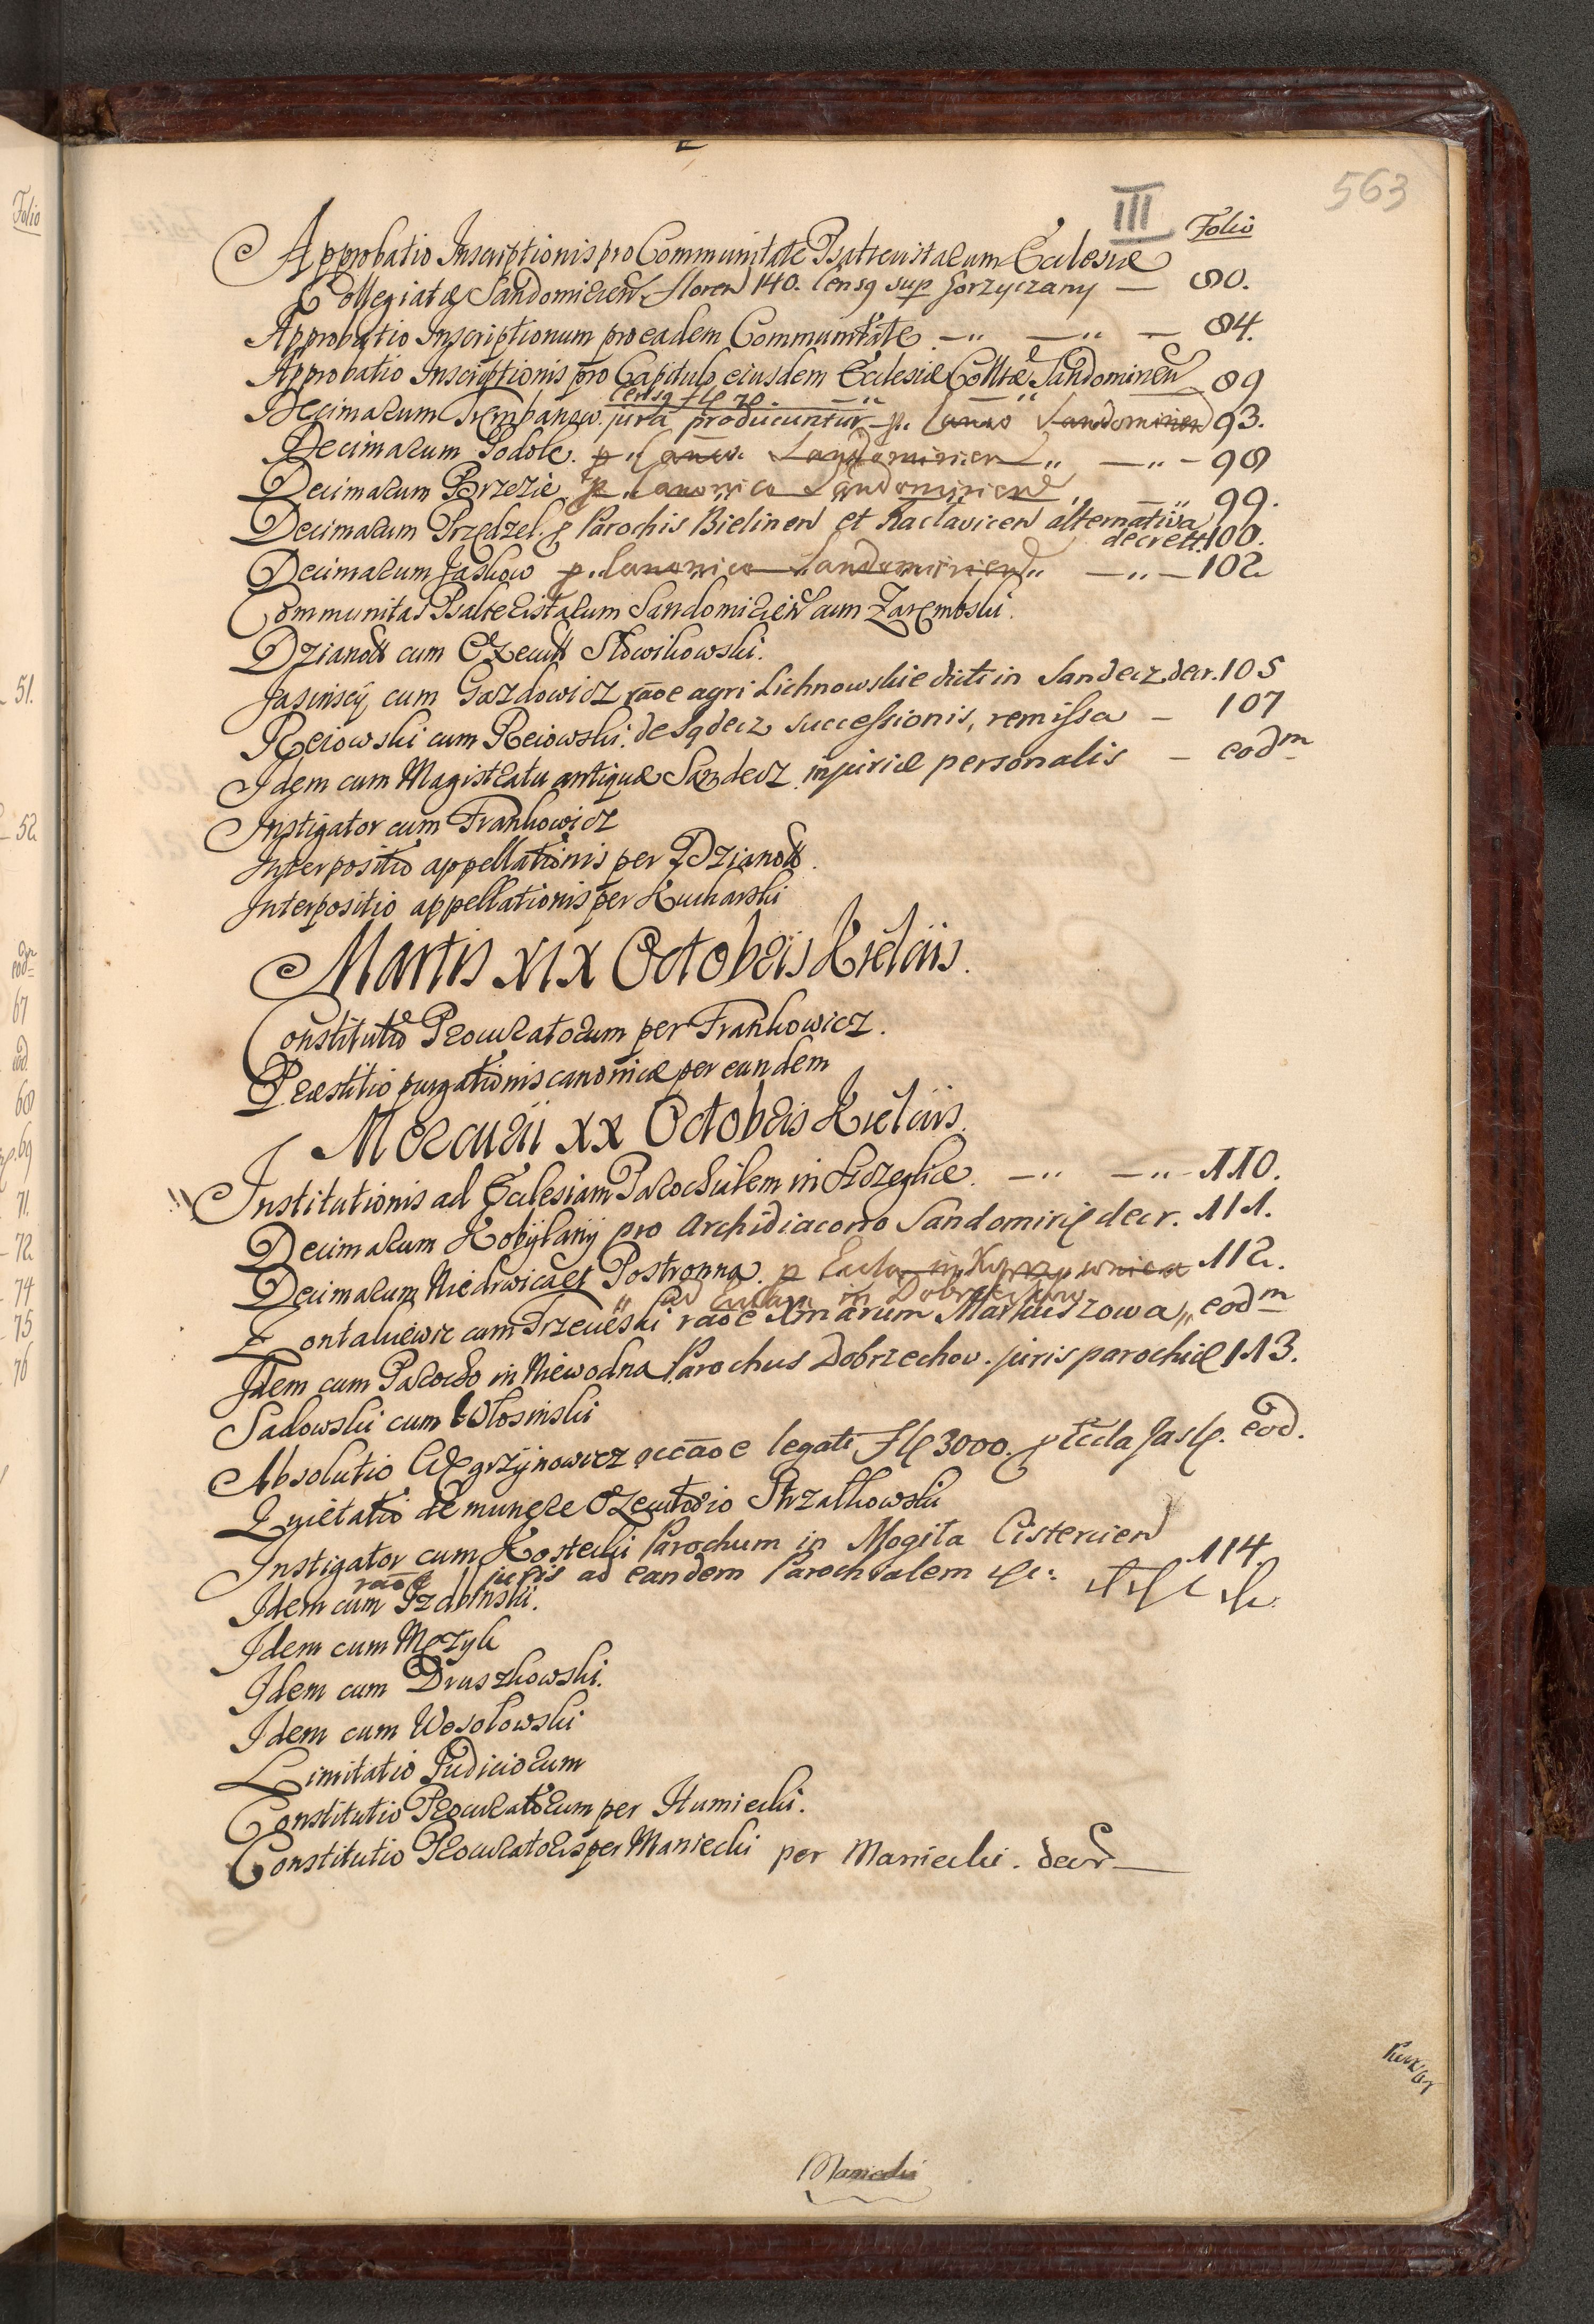 563
III
Folio
Approbatio Inscriptionis pro Communitate Psalteristarum Ecclesiæ
Collegiatæ Sandomirien floren 140. Censq sup Gorzyczany — 80.
Approbatio Inscriptionum pro eadem Communitate — 84.
Approbatio Inscriptionis pro Capitulo eiusdem Ecclesiæ Colltæ Sandomirien 89
Decimarum jura producuntur Sandomirien 93.
Decimarum Podole. p. Sandomirien — 98
Decimarum Brzezie p. Canonico Sandomirien 99.
Decimarum Przedzel. p Parochis Bielinen et Raclavicen alternativa
decrett. 100.
Decimarum Jaskow p. Canonico Sandomirien — 102
Communitas Psalteristarum Sandomirien cum Zarembski.
Dzianott cum Execut Słowikowski.
Jasinscy cum Gazdowicz rãoe agri Lichnowskie dicti in Sandecz decr. 105
Reiowski cum Reiowski. de Sądecz successionis, remissa — 107
Idem cum Magistratu antiquæ Sandecz injuriæ personalis — eodm
Instigator cum Frankowicz
Interpositio appellationis per Dzianott.
Interpositio appellationis per Kucharski
Martis XIX Octobris Kielciis.
Constitutio Procuratorum per Frankowicz.
Præstitio purgationis canonicæ per eundem
Mercurii XX Octobris Kielciis.
Institutionis ad Ecclesiam Parochialem in — 110.
Decimarum Kobylany pro Archidiacono Sandomiriæ decr. 111.
Decimarum Niedrwica et Postronna. p Eccla in 112.
ad Ecclam in
cum rãoe Xmarum Markuszowa,, eodm
Idem cum Parocho in Niewodna Parochus Dobrzechov. juris parochiæ 113.
Sadowski cum Włosinski
Absolutio Węgrzynowicz occãoe legati 3000. p Eccla eod.
Quietatio de munere Executorio Strzałkowski
Instigator cum Kostecki Parochum in Mogiła Cistercien
rãoe juris ad eandem Parochialem 114.
Idem cum
Idem cum Mozyk
Idem cum Druszkowski.
Idem cum Wosołowski
Limitatio Judiciorum
Constitutio Procuratorum per Humiecki.
Constitutio Procuratoris per Maniecki per Maniecki. decr
Maniecki